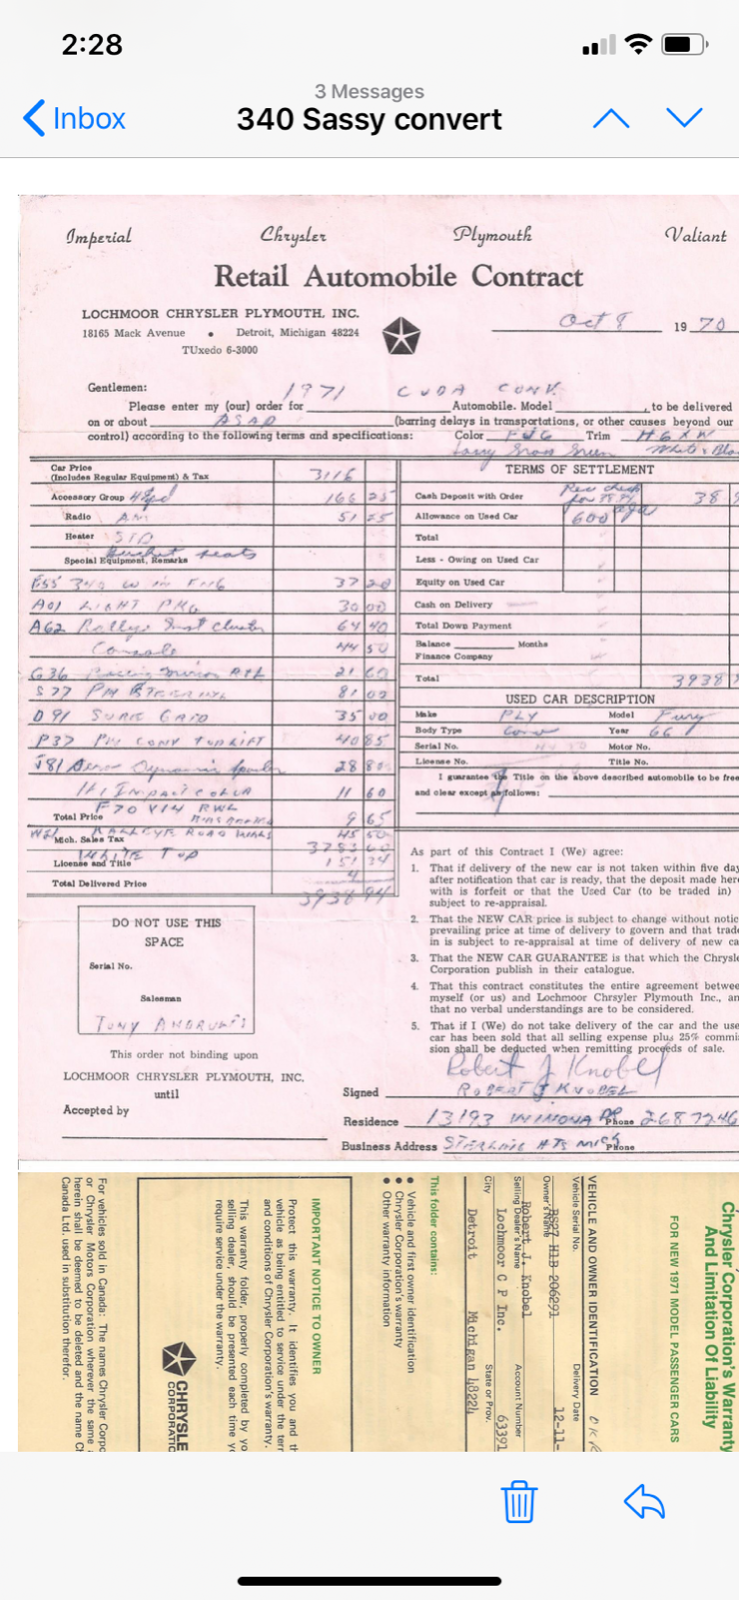 2:28
3 Messages
Inbox
340 Sassy convert
Imperial Chrysler Plymouth Valiant
Retail Automobile Contract
LOCHMOOR CHRYSLER PLYMOUTH, INC.
18165 Mack Avenue • Detroit, Michigan 48224
TUxedo 6-3000
Oct 8 1970
Gentlemen:
1971 CUDA CONV.
Please enter my (our) order for Automobile. Model , to be delivered
on or about ASAP (barring delays in transportations, or other causes beyond our
control) according to the following terms and specifications: Color FJ6 Trim H6XW
Sassy Grass Green White & Bla
Car Price
(Includes Regular Equipment) & Tax 3116
Accessory Group 4 Spd 166 25
Radio AM 51 25
Heater STD
Bucket seats
Special Equipment, Remarks
E55 340 37 20
A01 LIGHT PKG 30 00
A62 Rallye Inst cluster 64 40
Console 44 50
G36 Racing mirror 21 60
S77 PW STEERING 81 00
D91 SURE GRIP 35 00
P37 PW CONV TOP LIFT 40 85
J81 28 80
11 60
F70 X14 RWL
Total Price 9 65
W21 RALLEYE ROAD WHLS 45 50
Mich. Sales Tax 3783 60
WHITE TOP
License and Title 151 34
4
Total Delivered Price 3938 94
TERMS OF SETTLEMENT
Cash Deposit with Order 38
Allowance on Used Car 600
Total
Less - Owing on Used Car
Equity on Used Car
Cash on Delivery
Total Down Payment
Balance Months
Finance Company
Total 3938
USED CAR DESCRIPTION
Make PLY Model Fury
Body Type Conv Year 66
Serial No. Motor No.
License No. Title No.
I guarantee the Title on the above described automobile to be free
and clear except as follows:
DO NOT USE THIS
SPACE
Serial No.
Salesman
TONY
This order not binding upon
LOCHMOOR CHRYSLER PLYMOUTH, INC.
until
Accepted by
As part of this Contract I (We) agree:
1. That if delivery of the new car is not taken within five day
after notification that car is ready, that the deposit made here
with is forfeit or that the Used Car (to be traded in)
subject to re-appraisal.
2. That the NEW CAR price is subject to change without notic
prevailing price at time of delivery to govern and that trade
in is subject to re-appraisal at time of delivery of new ca
3. That the NEW CAR GUARANTEE is that which the Chrysle
Corporation publish in their catalogue.
4. That this contract constitutes the entire agreement betwee
myself (or us) and Lochmoor Chrsyler Plymouth Inc., an
that no verbal understandings are to be considered.
5. That if I (We) do not take delivery of the car and the use
car has been sold that all selling expense plus 25% commi
sion shall be deducted when remitting proceeds of sale.
Robert J Knobel
Signed ROBERT J KNOBEL
Residence 13193 WINONA DR Phone 268 7246
Business Address STERLING HTS MICH Phone
Chrysler Corporation's Warranty
And Limitation Of Liability
FOR NEW 1971 MODEL PASSENGER CARS
VEHICLE AND OWNER IDENTIFICATION
Vehicle Serial No. Delivery Date
BS27 H1B 206291 12-11-
Owner's Name
Robert J. Knobel
Selling Dealer's Name Account Number
Lochmoor C P Inc. 63391
City State or Prov.
Detroit Michigan 48224
This folder contains:
• Vehicle and first owner identification
• Chrysler Corporation's warranty
• Other warranty information
IMPORTANT NOTICE TO OWNER
Protect this warranty. It identifies you and th
vehicle as being entitled to service under the terr
and conditions of Chrysler Corporation's warranty.
This warranty folder, properly completed by yo
selling dealer, should be presented each time y
require service under the warranty.
CHRYSLE
CORPORATIO
For vehicles sold in Canada: The names Chrysler Corpo
or Chrysler Motors Corporation wherever the same
herein shall be deemed to be deleted and the name Ch
Canada Ltd. used in substitution therefor.